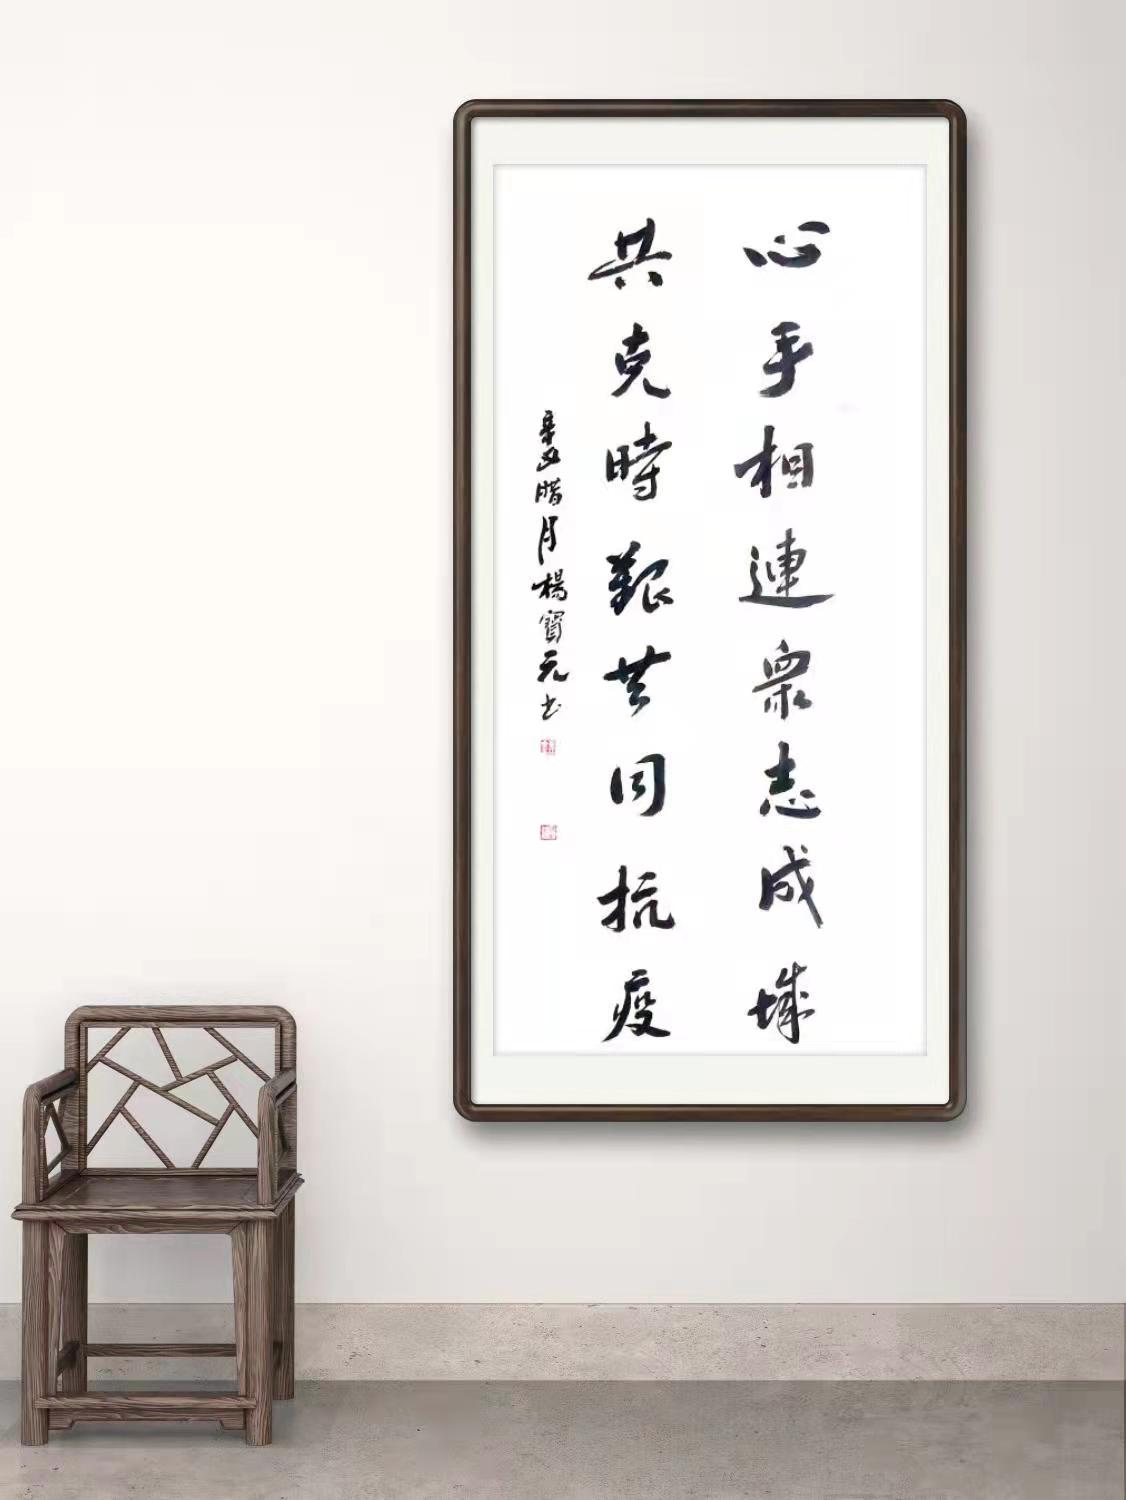 心手相連衆志成城
共克時艱共同抗疫
辛丑腊月楊寳元书